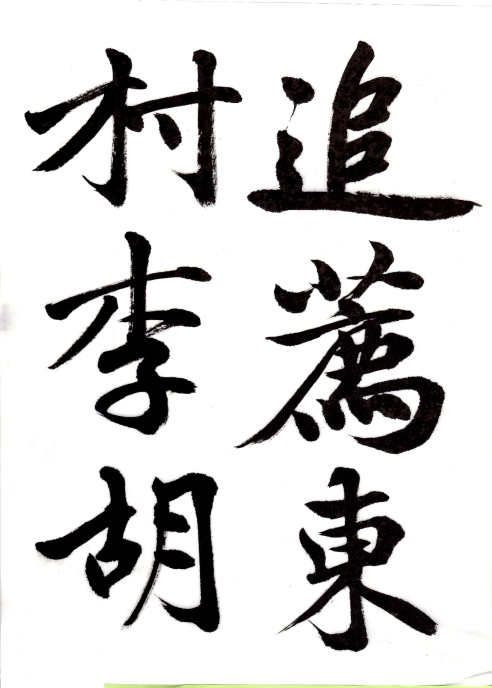 追薦東
村李胡